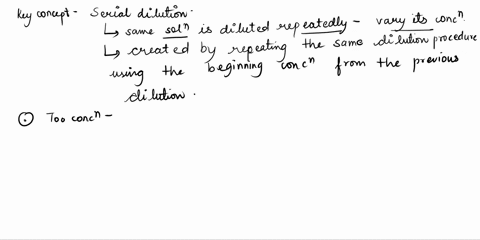 Key concept - Serial dilution.
↳ same solⁿ is diluted repeatedly - vary its concⁿ.
↳ created by repeating the same dilution procedure
using the beginning concⁿ from the previous
dilution.
Too concⁿ -